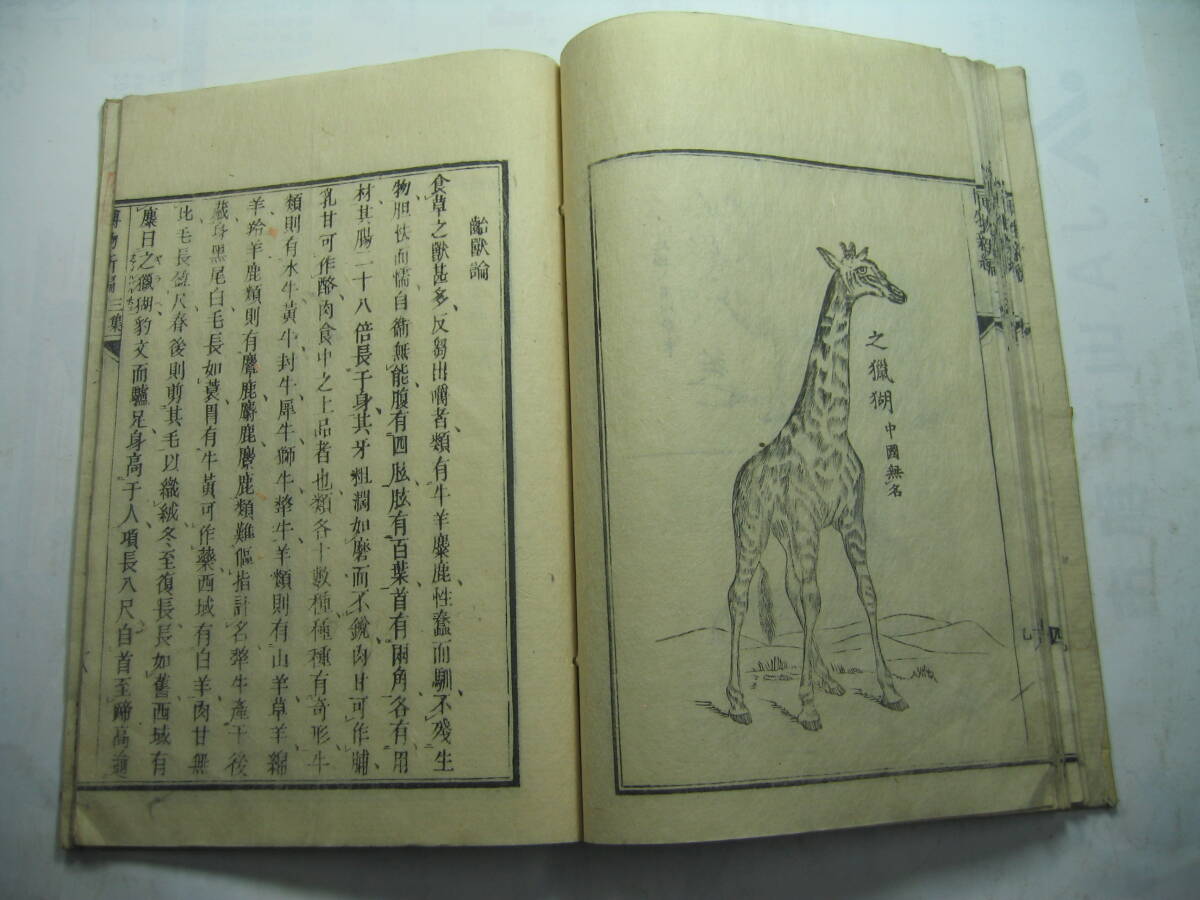 之獵猢 中國無名
齝獸論
食草之獸甚多反芻出嚼者類有牛羊麋鹿性蠢而馴不殘生
物胆怯而懦自衛無能腹有四胘胘有百葉首有兩角各有用
材其腸二十八倍長于身其牙粗濶如磨而不銳肉甘可作脯
乳甘可作酪肉食中之上品者也類各十數種種有奇形牛
類則有水牛黃牛封牛犀牛犛牛羊類則有山羊草羊綿
羊羚羊鹿類則有麞鹿麝鹿麋鹿類難傴指計名犛牛產于後
藏身黑尾白毛長如蓑胃有牛黃可作藥西域有白羊肉甘無
比毛長盈尺春後則剪其毛以織絨冬至復長長如舊西域有
麋日之獵猢豹文而驢足身高于人項長八尺自首至蹄高
博物新編三集